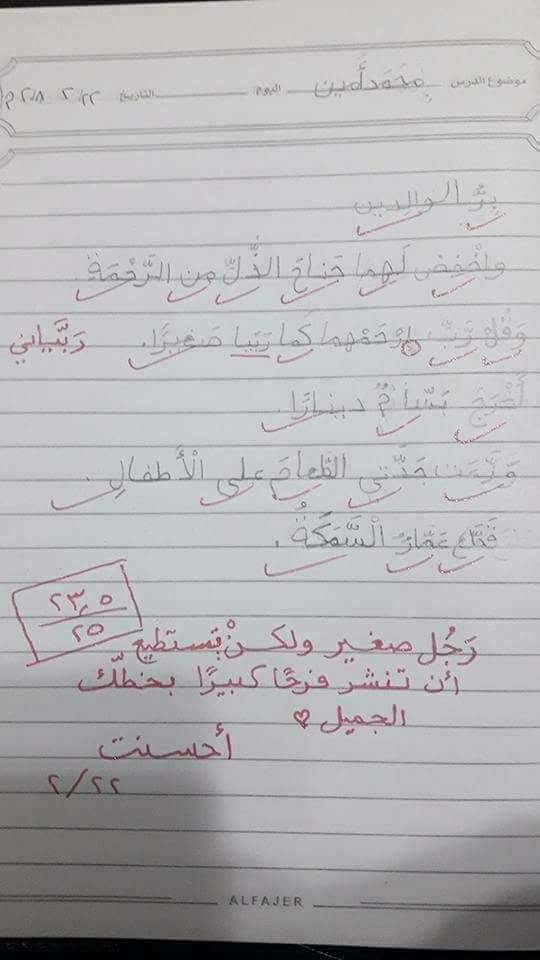 موضوع الدرس محمد أمين اليوم التاريخ ٢/٢٢ ٢٠١٨م
بِرُّ الوالدين
واخْفِض لَهما جَناحَ الذُّلِّ مِن الرَّحْمَة
وَقُل رَبِّ ارْحَمْهما كَما رَبَّيا صَغيرًا. رَبَّياني
أَخْرَجَ بَسّامٌ دينارًا.
وَزَّعَت جَدَّتي الطَّعامَ على الْأَطفالِ.
قَطَّعَ عَمّارٌ السَّمَكَةُ.
٢٣,٥
٢٥
رَجُل صغير ولكنْ تستطيع
أن تنشر فرحًا كبيرًا بخطّك
الجميل ♡
أحسنت
٢/٢٢
ALFAJER